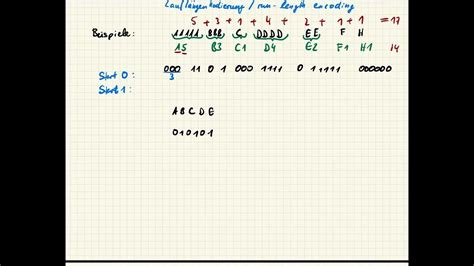 Lauflängenkodierung / run-length encoding
5 + 3 + 1 + 4 + 2 + 1 + 1 = 17
Beispiele: 11111 BBB C DDDD EE F H
15 B3 C1 D4 E2 F1 H1 14
Start 0: 000 11 0 1 000 1111 0 1 1111 000000
3
Start 1:
A B C D E
010101